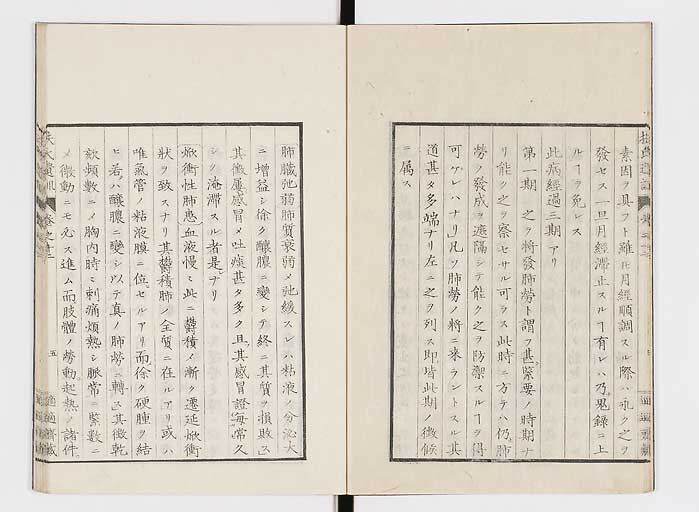 素因ヲ具フト雖𪜈月經順調スル際ハ永ク之ヲ
發セス一旦月經滯止スルヿ有レハ乃鬼錄ニ上
ルヿヲ免レス
此病經過三期アリ
第一期 之ヲ將發肺勞ト謂フ其緊要ノ時期ナ
リ能ク之ヲ察セサル可ラス此時ニ方テハ仍肺
勞ノ發成ヲ遮隔シテ能ク之ヲ防禦スルヿヲ得
可ケレハナリ凡ソ肺勞ノ將ニ來ラントスル其
道甚タ多端ナリ左ニ之ヲ列ス即皆此期ノ徴候
ニ属ス
肺臓弛弱肺質衰弱メ弛緩スレハ粘液ノ分泌大
ニ增益シ徐ク釀膿ニ變シテ終ニ其質ヲ損敗ス
其徴屢感冒メ吐痰甚タ多ク且其感冒證每常久
シク淹滯スル者是ナリ
焮衝性肺患血液慢ク此ニ欝積メ漸ク遷延焮衝
狀ヲ致スナリ其欝積肺ノ全質ニ在ルアリ或ハ
唯氣管ノ粘液膜ニ位セルアリ而徐ク硬腫ヲ結
ヒ若ハ釀膿ニ變シ以テ真ノ肺勞ニ轉ス其徴乾
欬頻數ニメ胸内時ニ刺痛煩熱シ脈常ニ緊數ニ
メ微動ニモ必ス進ム而肢體ノ勞動起熱ノ諸件
扶氏遺訓 卷之十二
五